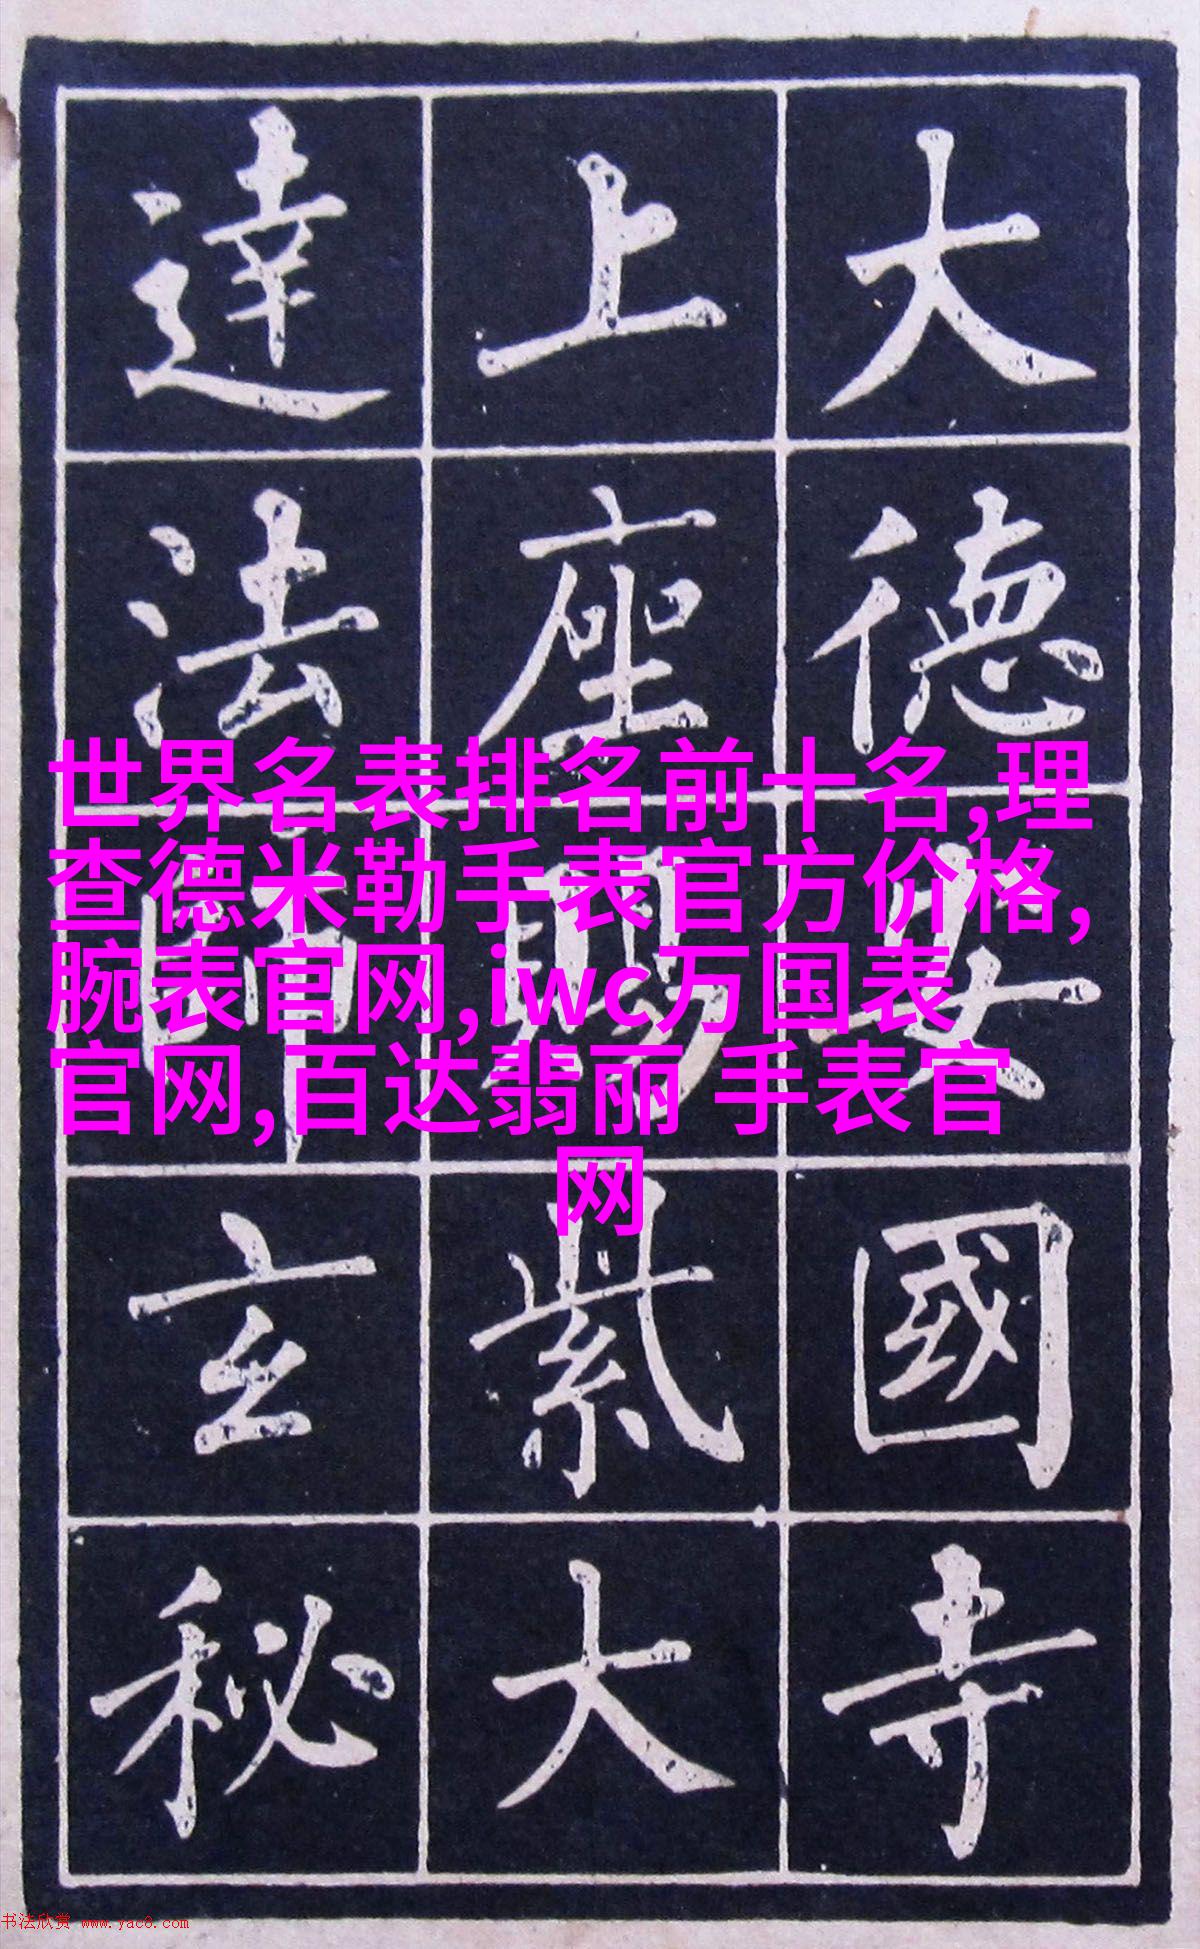 大德安國寺
上座賜紫大
達法師玄秘
世界名表排名前十名,理
查德米勒手表官方价格,
腕表官网,iwc万国表
官网,百达翡丽 手表官
网
书法欣赏 www.yac8.com